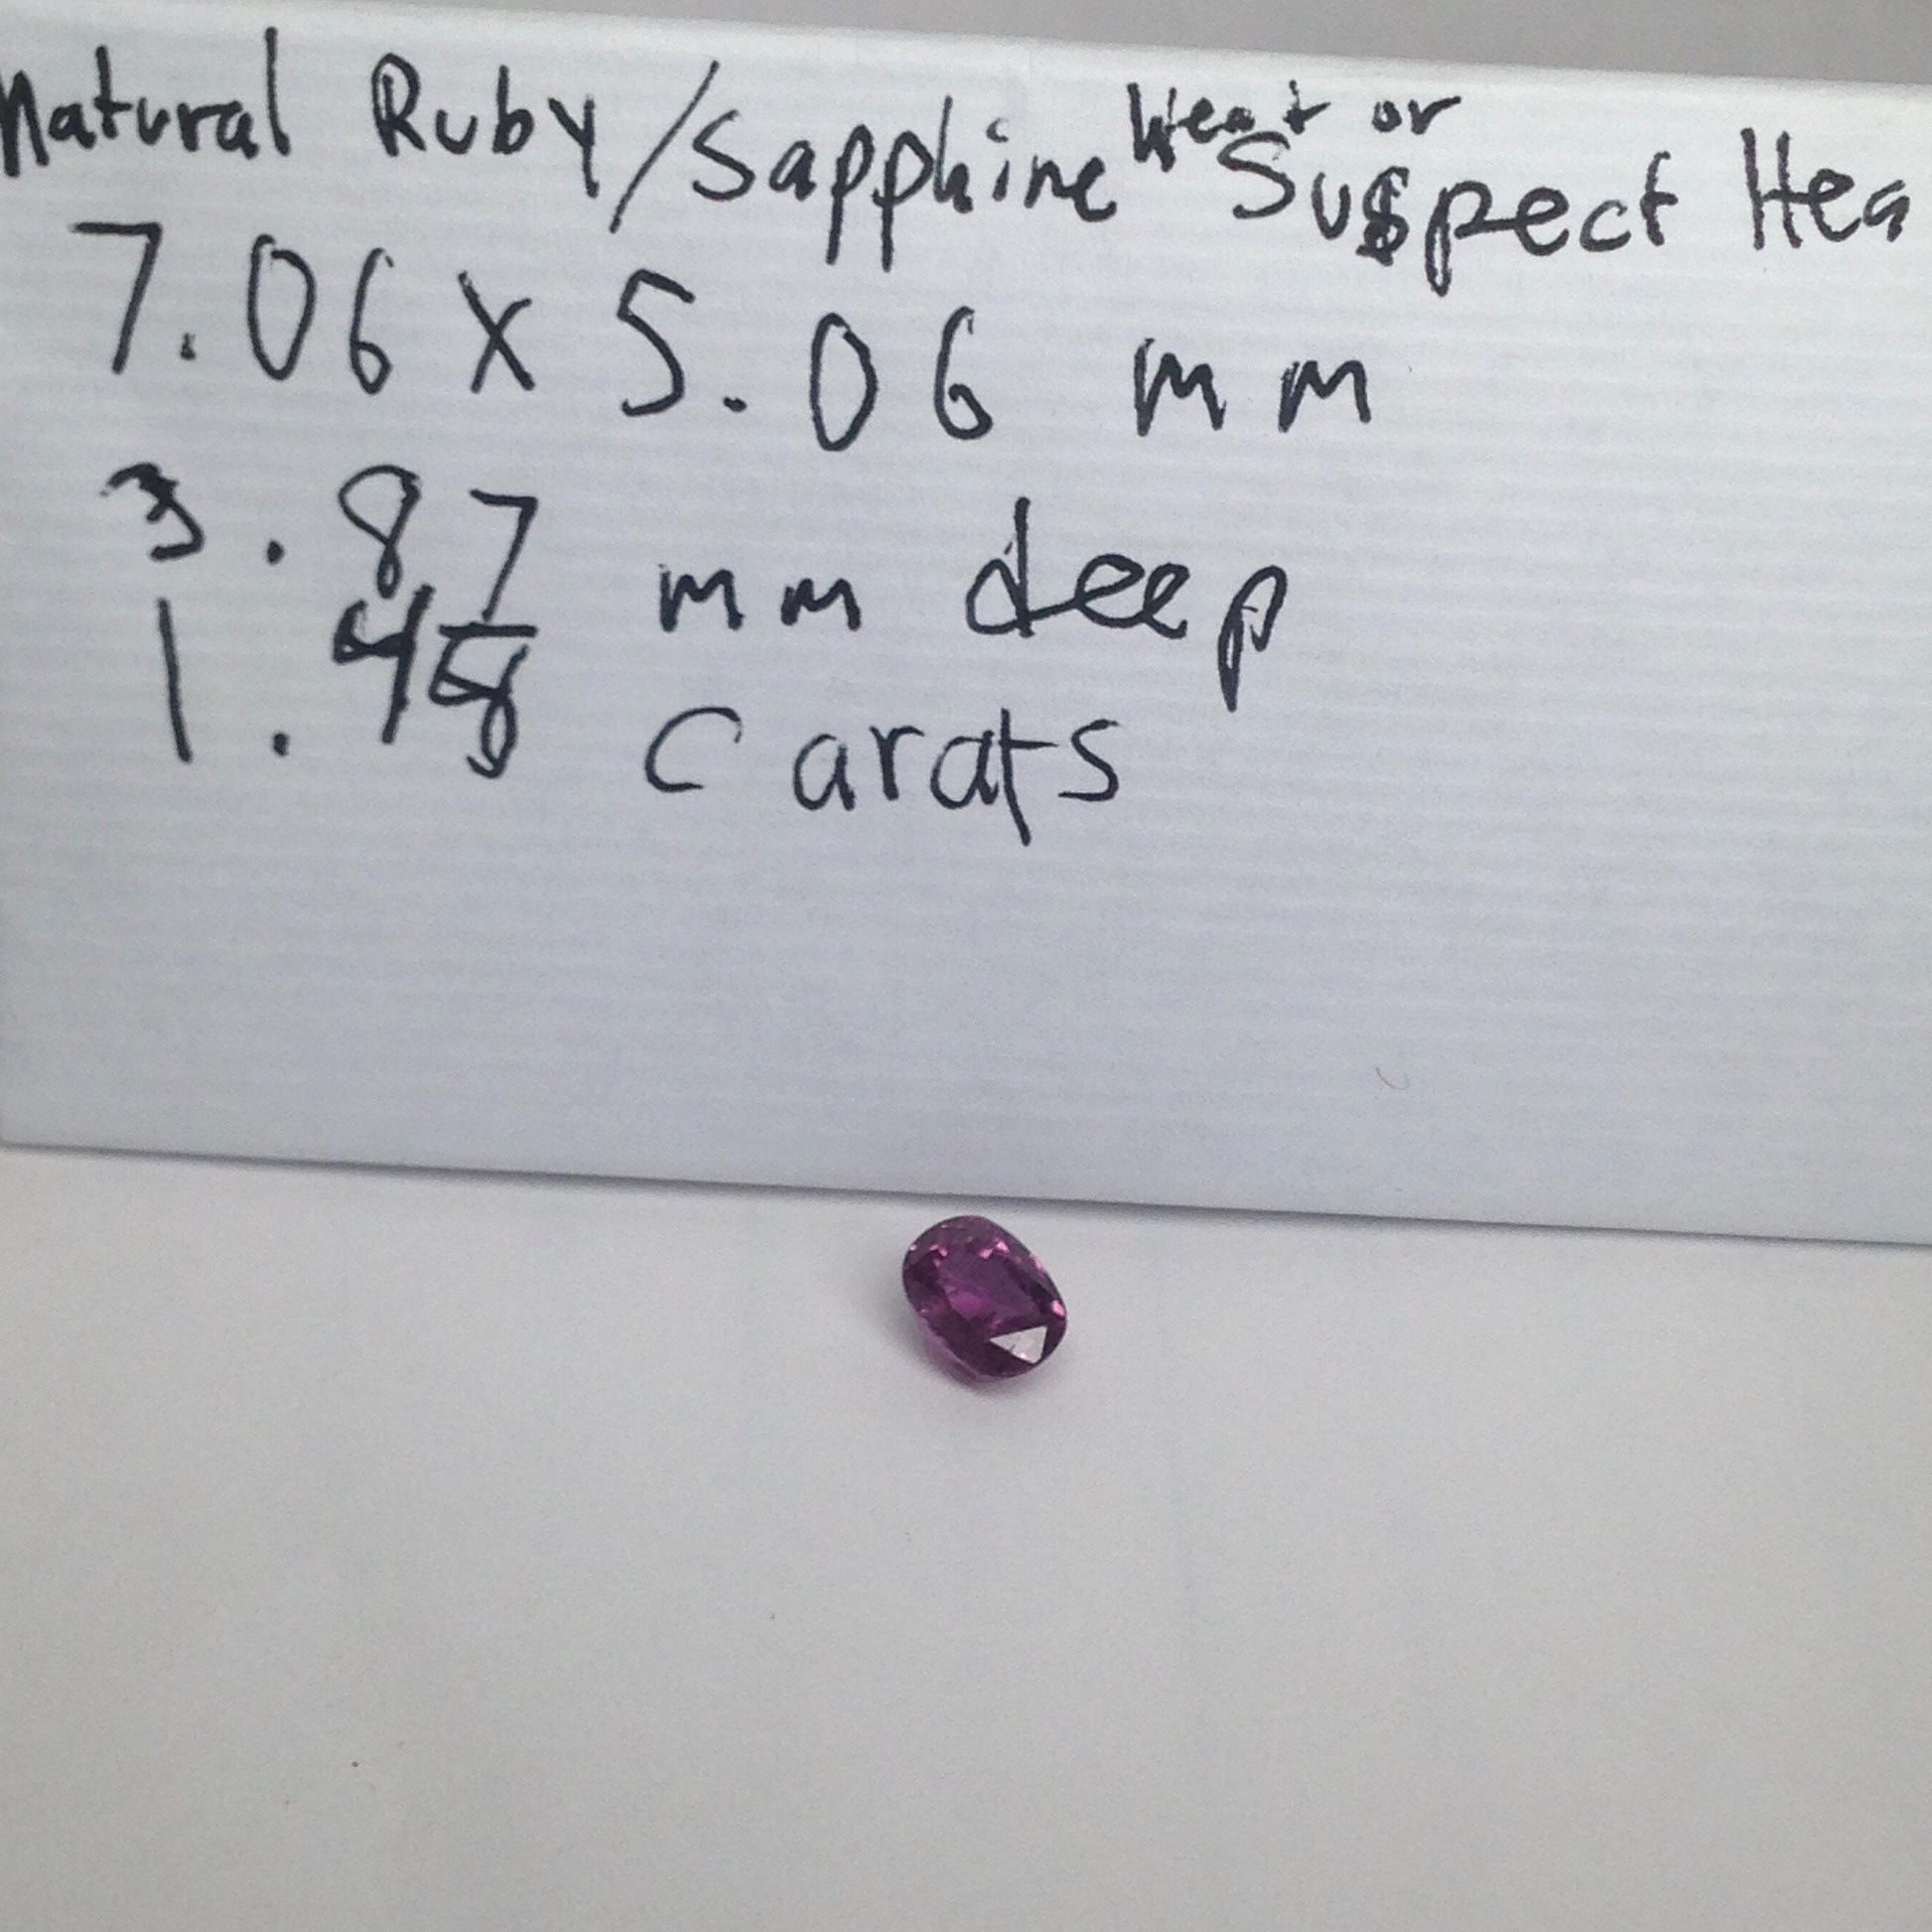 Natural Ruby/Sapphire Heat or Suspect Hea
7.06 x 5.06 mm
3.87 mm deep
1.45 Carats